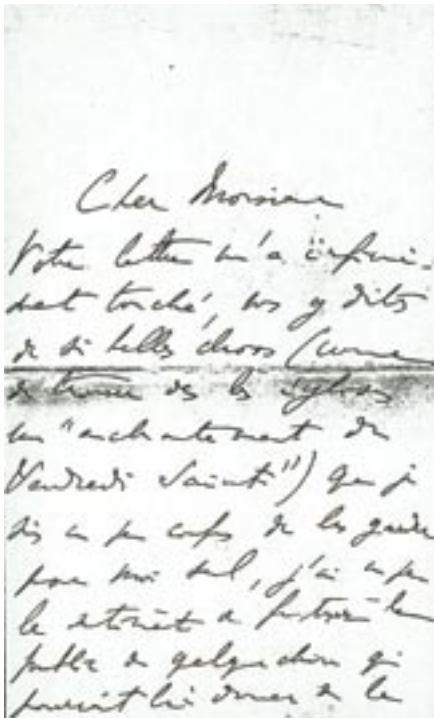 Cher Monsieur
Votre lettre m'a infini-
ment touché, vous y dites
de si belles choses (comme
de trouver ds les églises
un "enchantement du
Vendredi Saint") que je
suis un peu confus de les garder
pour moi seul, j'ai un peu
le
public de quelque chose qui
pourrait lui donner de le